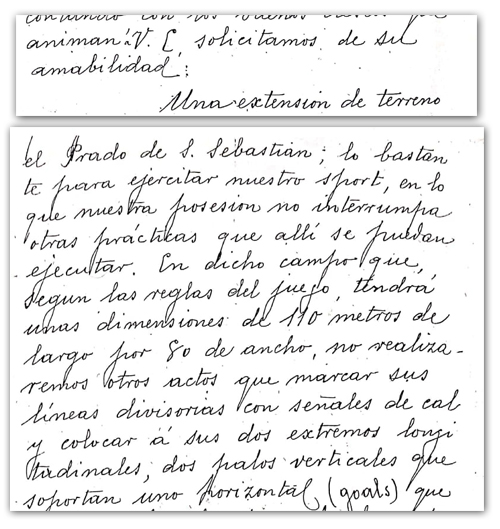 contando con los buenos deseos que
animan á V. E, solicitamos de su
amabilidad:
Una extension de terreno
el Prado de S. Sebastian; lo bastan
te para ejercitar nuestro sport, en lo
que nuestra posesion no interrumpa
otras prácticas que allí se puedan
ejecutar. En dicho campo que,
segun las reglas del juego, tendrá
unas dimensiones de 110 metros de
largo por 80 de ancho, no realiza-
remos otros actos que marcar sus
líneas divisorias con señales de cal
y colocar á sus dos extremos longi
tudinales, dos palos verticales que
soportan uno horizontal (goals) que